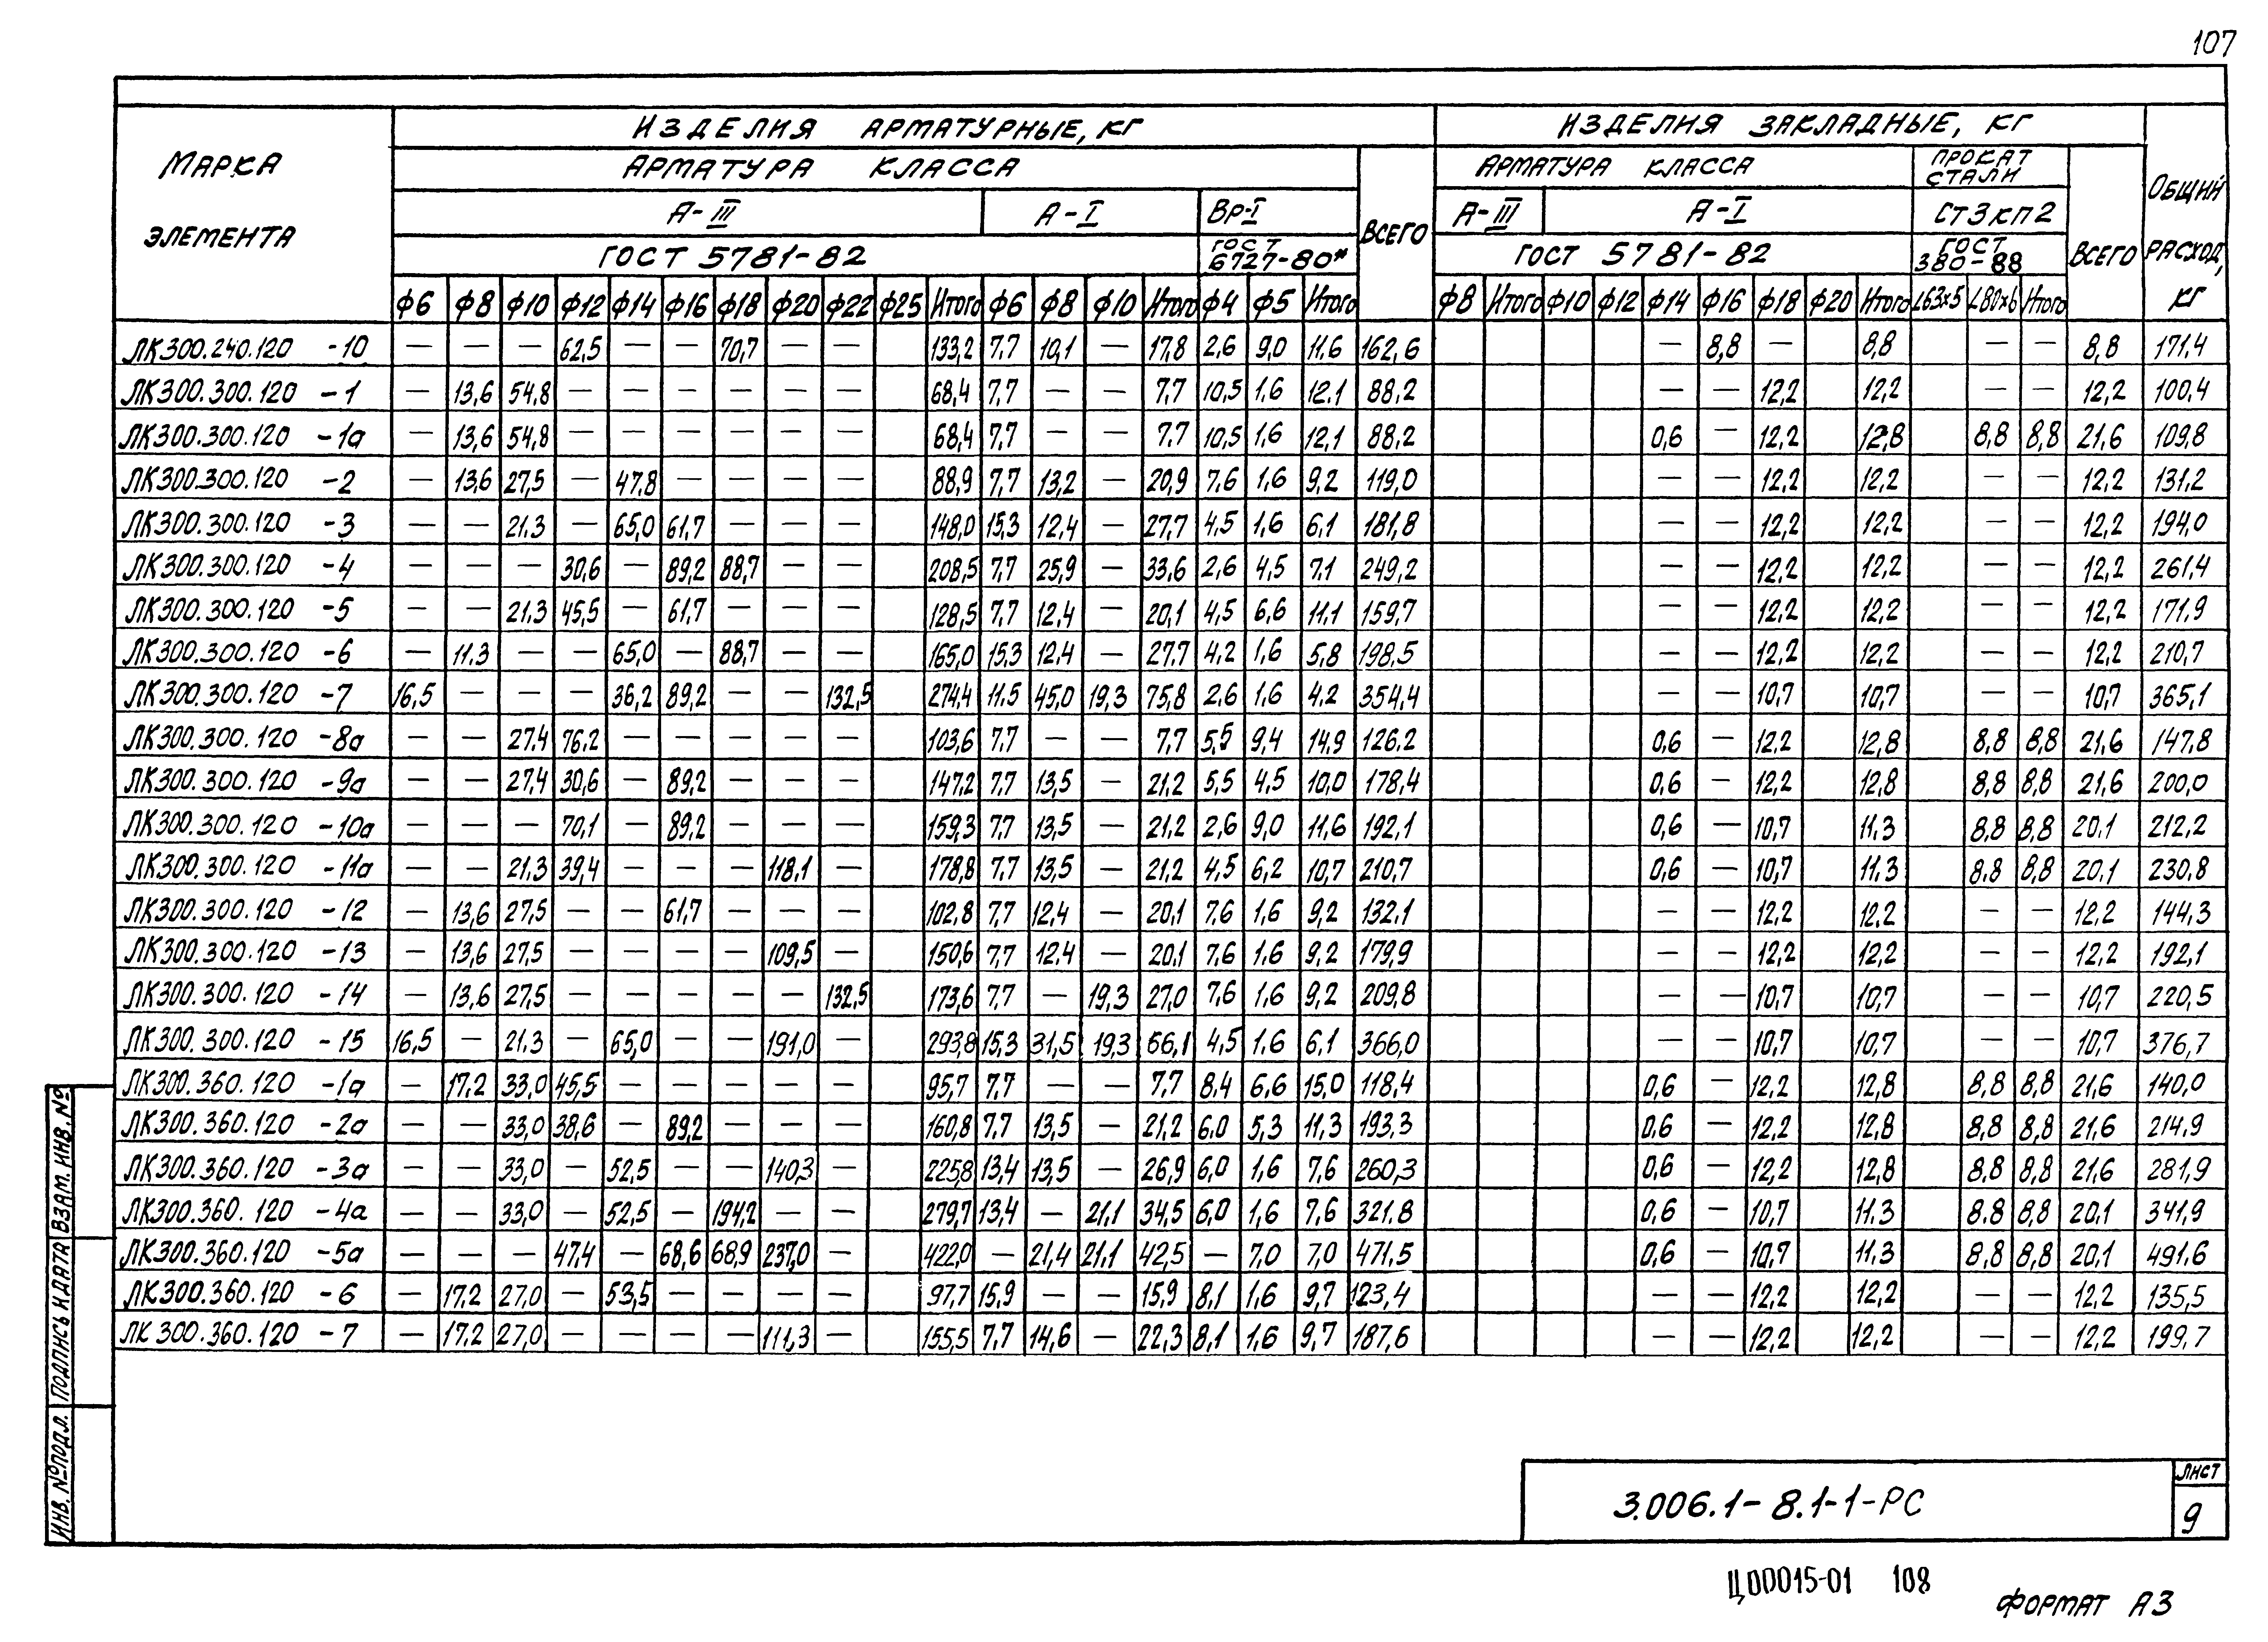 107
МАРКА ЭЛЕМЕНТА
ИЗДЕЛИЯ АРМАТУРНЫЕ, КГ
ИЗДЕЛИЯ ЗАКЛАДНЫЕ, КГ
ОБЩИЙ РАСХОД, КГ
АРМАТУРА КЛАССА
ВСЕГО
АРМАТУРА КЛАССА
ПРОКАТ СТАЛИ
ВСЕГО
А-III А-I Вр-I А-III А-I Ст3кп2
ГОСТ 5781-82 ГОСТ 6727-80* ГОСТ 5781-82 ГОСТ 380-88
ф6 ф8 ф10 ф12 ф14 ф16 ф18 ф20 ф22 ф25 Итого ф6 ф8 ф10 Итого ф4 ф5 Итого ф8 Итого ф10 ф12 ф14 ф16 ф18 ф20 Итого L63x5 L80x6 Итого
ЛК300.240.120 -10 — — — 62,5 — — 70,7 — — 133,2 7,7 10,1 — 17,8 2,6 9,0 11,6 162,6 — 8,8 — 8,8 — — 8,8 171,4
ЛК300.300.120 -1 — 13,6 54,8 — — — — — — 68,4 7,7 — — 7,7 10,5 1,6 12,1 88,2 — — 12,2 12,2 — — 12,2 100,4
ЛК300.300.120 -1а — 13,6 54,8 — — — — — — 68,4 7,7 — — 7,7 10,5 1,6 12,1 88,2 0,6 — 12,2 12,8 8,8 8,8 21,6 109,8
ЛК300.300.120 -2 — 13,6 27,5 — 47,8 — — — — 88,9 7,7 13,2 — 20,9 7,6 1,6 9,2 119,0 — — 12,2 12,2 — — 12,2 131,2
ЛК300.300.120 -3 — — 21,3 — 65,0 61,7 — — — 148,0 15,3 12,4 — 27,7 4,5 1,6 6,1 181,8 — — 12,2 12,2 — — 12,2 194,0
ЛК300.300.120 -4 — — — 30,6 — 89,2 88,7 — — 208,5 7,7 25,9 — 33,6 2,6 4,5 7,1 249,2 — — 12,2 12,2 — — 12,2 261,4
ЛК300.300.120 -5 — — 21,3 45,5 — 61,7 — — — 128,5 7,7 12,4 — 20,1 4,5 6,6 11,1 159,7 — — 12,2 12,2 — — 12,2 171,9
ЛК300.300.120 -6 — 11,3 — — 65,0 — 88,7 — — 165,0 15,3 12,4 — 27,7 4,2 1,6 5,8 198,5 — — 12,2 12,2 — — 12,2 210,7
ЛК300.300.120 -7 16,5 — — — 36,2 89,2 — — 132,5 274,4 11,5 45,0 19,3 75,8 2,6 1,6 4,2 354,4 — — 10,7 10,7 — — 10,7 365,1
ЛК300.300.120 -8а — — 27,4 76,2 — — — — — 103,6 7,7 — — 7,7 5,5 9,4 14,9 126,2 0,6 — 12,2 12,8 8,8 8,8 21,6 147,8
ЛК300.300.120 -9а — — 27,4 30,6 — 89,2 — — — 147,2 7,7 13,5 — 21,2 5,5 4,5 10,0 178,4 0,6 — 12,2 12,8 8,8 8,8 21,6 200,0
ЛК300.300.120 -10а — — — 70,1 — 89,2 — — — 159,3 7,7 13,5 — 21,2 2,6 9,0 11,6 192,1 0,6 — 10,7 11,3 8,8 8,8 20,1 212,2
ЛК300.300.120 -11а — — 21,3 39,4 — — — 118,1 — 178,8 7,7 13,5 — 21,2 4,5 6,2 10,7 210,7 0,6 — 10,7 11,3 8,8 8,8 20,1 230,8
ЛК300.300.120 -12 — 13,6 27,5 — — 61,7 — — — 102,8 7,7 12,4 — 20,1 7,6 1,6 9,2 132,1 — — 12,2 12,2 — — 12,2 144,3
ЛК300.300.120 -13 — 13,6 27,5 — — — — 109,5 — 150,6 7,7 12,4 — 20,1 7,6 1,6 9,2 179,9 — — 12,2 12,2 — — 12,2 192,1
ЛК300.300.120 -14 — 13,6 27,5 — — — — — 132,5 173,6 7,7 — 19,3 27,0 7,6 1,6 9,2 209,8 — — 10,7 10,7 — — 10,7 220,5
ЛК300.300.120 -15 16,5 — 21,3 — 65,0 — — 191,0 — 293,8 15,3 31,5 19,3 66,1 4,5 1,6 6,1 366,0 — — 10,7 10,7 — — 10,7 376,7
ЛК300.360.120 -1а — 17,2 33,0 45,5 — — — — — 95,7 7,7 — — 7,7 8,4 6,6 15,0 118,4 0,6 — 12,2 12,8 8,8 8,8 21,6 140,0
ЛК300.360.120 -2а — — 33,0 38,6 — 89,2 — — — 160,8 7,7 13,5 — 21,2 6,0 5,3 11,3 193,3 0,6 — 12,2 12,8 8,8 8,8 21,6 214,9
ЛК300.360.120 -3а — — 33,0 — 52,5 — — 140,3 — 225,8 13,4 13,5 — 26,9 6,0 1,6 7,6 260,3 0,6 — 12,2 12,8 8,8 8,8 21,6 281,9
ЛК300.360.120 -4а — — 33,0 — 52,5 — 194,2 — — 279,7 13,4 — 21,1 34,5 6,0 1,6 7,6 321,8 0,6 — 10,7 11,3 8,8 8,8 20,1 341,9
ЛК300.360.120 -5а — — — 47,4 — 68,6 68,9 237,0 — 422,0 — 21,4 21,1 42,5 — 7,0 7,0 471,5 0,6 — 10,7 11,3 8,8 8,8 20,1 491,6
ЛК300.360.120 -6 — 17,2 27,0 — 53,5 — — — — 97,7 15,9 — — 15,9 8,1 1,6 9,7 123,4 — — 12,2 12,2 — — 12,2 135,5
ЛК300.360.120 -7 — 17,2 27,0 — — — — 111,3 — 155,5 7,7 14,6 — 22,3 8,1 1,6 9,7 187,6 — — 12,2 12,2 — — 12,2 199,7
ИНВ. № ПОДЛ. ПОДПИСЬ И ДАТА ВЗАМ. ИНВ. №
3.006.1-8.1-1-РС
ЛИСТ
9
Ц00015-01 108
ФОРМАТ А3